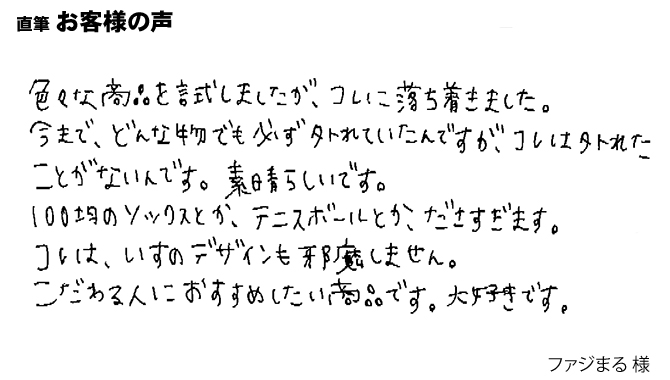 直筆 お客様の声
色々な商品を試しましたが、コレに落ち着きました。
今まで、どんな物でも必ず外れていたんですが、コレは外れた
ことがないんです。素晴らしいです。
100均のソックスとか、テニスボールとか、ださすぎます。
コレは、いすのデザインも邪魔しません。
こだわる人におすすめしたい商品です。大好きです。
ファジまる 様